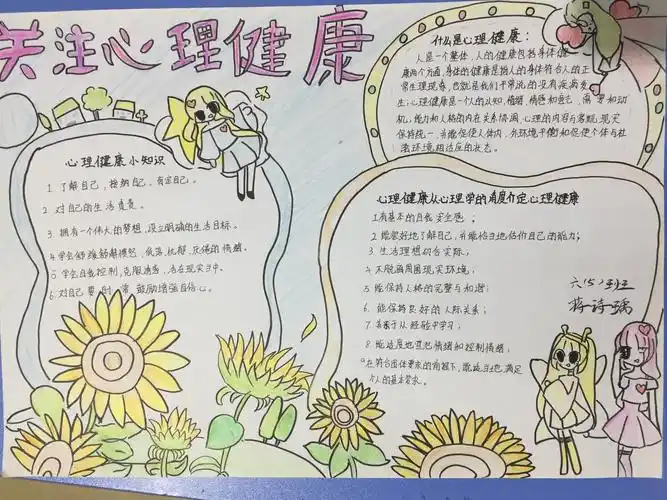 关注心理健康
什么是心理健康：
人是一个整体，人的健康包括身体健
康两个方面，身体的健康是指人的身体符合人的正
常生理现象，也就是我们平常说的没有疾病发
生；心理健康是一个人的认知，情绪，情感和意志，需要和动
机，能力和人格的内在关系协调，心理的内容与客观现实
保持统一，并能促使人体内、外环境平衡和促使个体与社
会环境相适应的状态。
心理健康小知识
1. 了解自己，接纳自己，肯定自己。
2. 对自己的生活负责。
3. 拥有一个伟大的梦想，设立明确的生活目标。
4. 学会舒缓
低落，忧郁，反倦的情绪。
5. 学会自我控制，克服诱惑，活在现实当中。
6. 对自己要时常鼓励增强自信心。
心理健康从心理学的角度介定心理健康
1. 有基本的自我安全感；
2. 能很好地了解自己，并能恰当地估价自己的能力；
3. 生活理想切合实际；
4. 不脱离周围现实环境；
5. 能保持人格的完整与和谐；
6. 能保持良好的人际关系；
7. 善于从经验中学习；
8. 能适度地宣泄情绪和控制情绪；
9. 在符合团体要求的前提下，能适当地满足
个人的基本需求。
六（5）班
蒋诗瑀